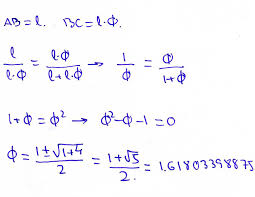 AB = l. BC = l·Φ.
l/(l·Φ) = (l·Φ)/(l+l·Φ) → 1/Φ = Φ/(1+Φ)
1+Φ = Φ² → Φ²-Φ-1 = 0
Φ = (1±√(1+4))/2 = (1+√5)/2. = 1.61803398875